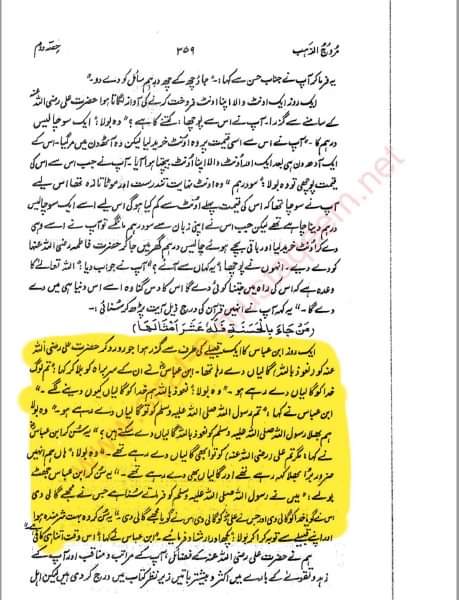 مروج الذہب ۳۵۹ حصہ دوم
یہ فرما کر آپ نے جناب حسن سے کہا:۔ "جاؤ چھ کے چھ درہم سائل کو دے دو۔"
ایک روز ایک اونٹ والا اپنا اونٹ فروخت کرنے کی آواز لگاتا ہوا حضرت علی رضی اللہ عنہ
کے سامنے سے گزرا۔ آپ نے اس سے پوچھا: کتنے کا ہے؟" وہ بولا؟ ایک سو چالیس
درہم کا۔" آپ نے اس سے اسی قیمت پر وہ اونٹ خرید لیا لیکن وہ آٹھ دن میں مر گیا۔ اس کے
ایک آدھ دن ہی بعد ایک اور اونٹ والا اپنا اونٹ بیچتا ہوا آیا۔ آپ نے جب اس سے اس کی
قیمت پوچھی تو وہ بولا؟ سو درہم" وہ اونٹ نہایت تندرست اور موٹا تازہ تھا اس لیے
آپ نے سوچا تھا کہ اس کی قیمت پہلے اونٹ سے کم کیا ہو گی اس لیے اسے ایک سو چالیس
درہم دینا چاہے تھے لیکن جب اس نے اپنی زبان سے سو درہم مانگے تو آپ نے اسے وہی
دے کر اونٹ خرید لیا اور باقی بچے ہوئے چالیس درہم گھر میں جا کر حضرت فاطمہ رضی اللہ عنہا
کو دے دیے۔ انہوں نے پوچھا؟ یہ کہاں سے آئے؟" آپ نے جواب دیا؟ اللہ تعالےٰ کا
وعدہ ہے کہ اس کی راہ میں جتنا کوئی دے گا اس کا دس گنا وہ اسے اس دنیا ہی میں دے
دے گا۔" یہ کہہ کر آپ نے انہیں قرآن کی درج ذیل آیت پڑھ کر سنائی:۔
(مَنْ جَاءَ بِالْحَسَنَةِ فَلَهُ عَشْرُ أَمْثَالِهَا)
ایک روز ابن عباس کا ایک قبیلے کی طرف سے گزر ہوا جو رو در رو کر حضرت علی رضی اللہ
عنہ کو (نعوذ باللہ) گالیاں دے رہا تھا۔ ابن عباس نے ان کے سربراہ کو بلا کر کہا؟ تم لوگ
خدا کو گالیاں دے رہے ہو۔" وہ بولا؟ نعوذ باللہ ہم خدا کو گالیاں کیوں دینے لگے۔"
ابن عباس نے کہا؟ تم رسول اللہ صلی اللہ علیہ وسلم کو تو گالیاں دے رہے ہو۔" وہ بولا
ہم بھلا رسول اللہ صلی اللہ علیہ وسلم کو نعوذ باللہ گالیاں دے سکتے ہیں؟" یہ سن کر ابن عباس
نے کہا؟ مگر تم علی (رضی اللہ عنہ) کو تو ابھی گالیاں دے رہے تھے۔" وہ بولا؟ ہاں ہم انہیں
ضرور برا بھلا کہہ رہے تھے اور گالیاں بھی دے رہے تھے۔" یہ سن کر ابن عباس جھٹ
بولے؟ میں نے رسول اللہ صلی اللہ علیہ وسلم کو فرماتے سنا ہے جس نے مجھے گالی دی
اس نے گویا خدا کو گالی دی اور جس نے علی کو گالی دی اس نے گویا مجھے گالی دی۔" یہ سن کر وہ بہت شرمندہ ہوا
اور اپنے قبیلے سے توبہ کرا کر بولا؟ کچھ اور ارشاد فرمایے۔" ابن عباس نے کہا؟ اس وقت اتنا ہی کافی ہے
ہم نے حضرت علی رضی اللہ عنہ کے فضائل، آپ کے مراتب و مناقب اور آپ کے
زہد و تقویٰ کے بارے میں اکثر و بیشتر باتیں زیر نظر کتاب میں درج کر دی ہیں لیکن اہل